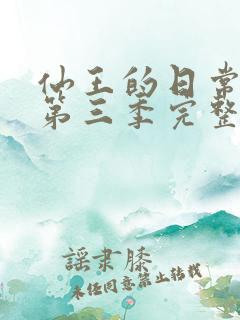 仙王的日常
第三季完整
謡隶膝
未经同意禁止转载